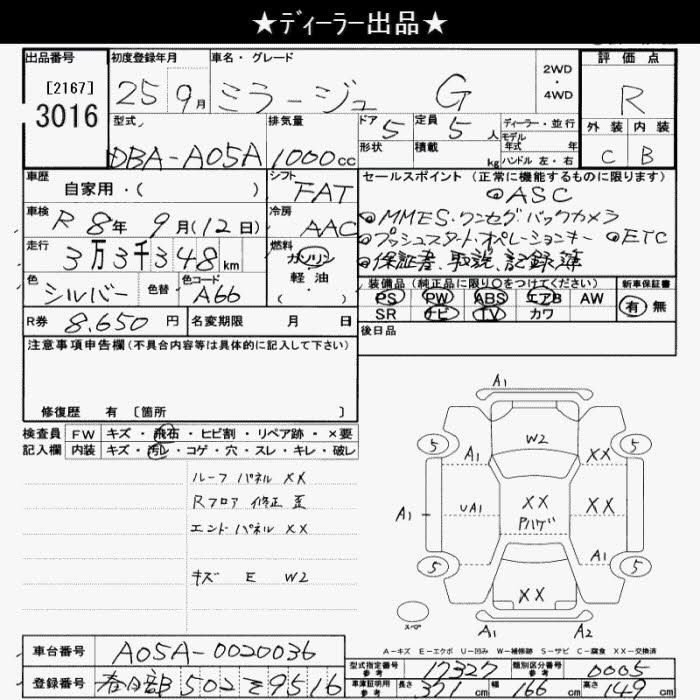 ★ディーラー出品★
出品番号 初度登録年月 車名・グレード 2WD ・ 4WD 評価点
[2167]
3016 25 9月 ミラージュ G R
型式 排気量 ドア 5 定員 5人 ディーラー・並行 外装 内装
モデル年式 年
DBA-A05A 1000cc 形状 積載 kg ハンドル 左・右 C B
車歴 自家用・( ) シフト FAT セールスポイント (正常に機能するものに限ります)
◎ASC
車検 R 8年 9月(12日) 冷房 AAC ◎MMES・ワンセグバックカメラ
走行 3万3千348km 燃料 ガソリン ◎プッシュスタート・オペレーションキー ◎ETC
軽油 ( ) ◎保証書、取説、記録簿
色 シルバー 色替 色コード A66 装備品 (純正品に限り○をつけてください) 新車保証書
PS PW ABS エアB AW 有・無
R券 8,650円 名変期限 月 日 SR ナビ TV カワ
注意事項申告欄 (不具合内容等は具体的に記入して下さい) 後日品
修復歴 有 〔箇所 〕
検査員 FW キズ・飛石・ヒビ割・リペア跡・×要
記入欄 内装 キズ・汚レ・コゲ・穴・スレ・キレ・破レ
ルーフパネル XX
Rフロア 修正 歪
エンドパネル XX
キズ E W2
A1
W2
5 5
A1 XX
A1 UA1 XX XX A1
Pハゲ
A1
5 5
XX
スペア A1 A2
A-キズ E-エクボ U-凹み W-補修跡 S-サビ C-腐食 XX-交換済
車台番号 A05A-0020036
型式指定番号 参考 17327 類別区分番号 参考 0005
登録番号 春日部 502 そ 9516 車庫証明用 参考 長さ 371cm 幅 166cm 高さ 149cm